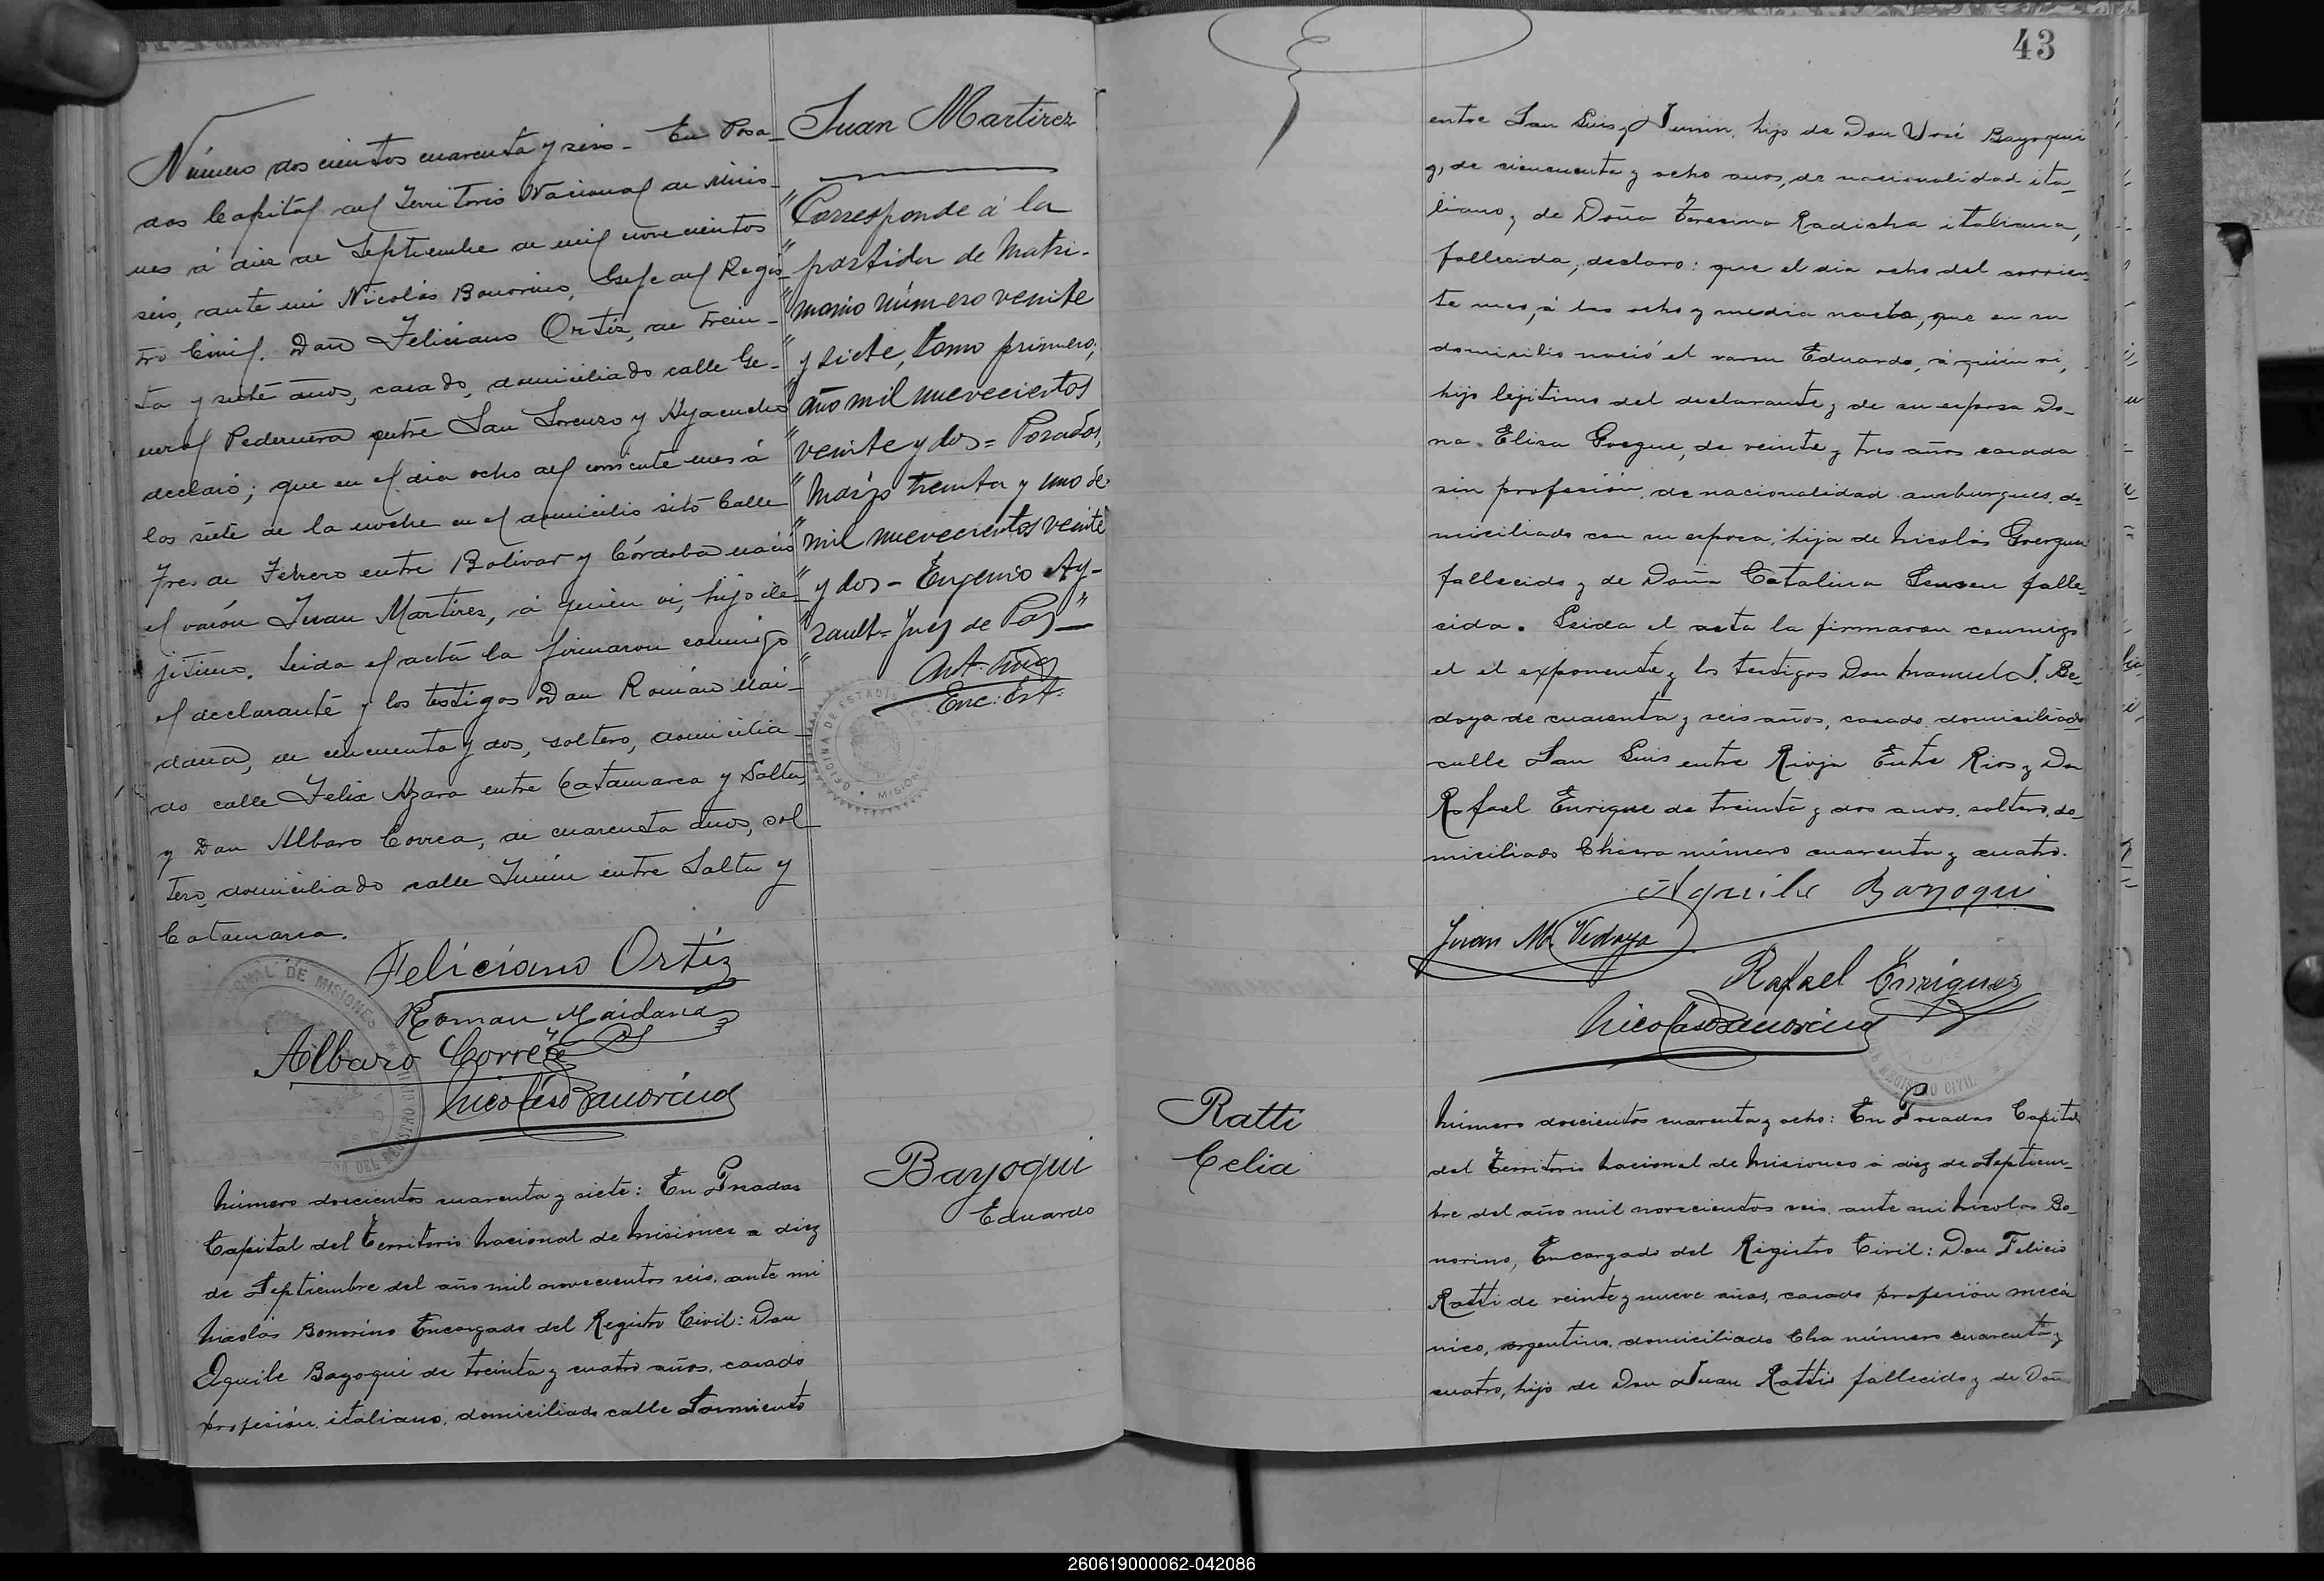 Número dos cientos cuarenta y seis - En Posa-
das Capital del Territorio Nacional de Misio-
nes á diez de Septiembre de mil novecientos
seis, ante mi Nicolás Bonorino, Gefe del Regis-
tro Civil. Don Feliciano Ortiz, de trein-
ta y siete años, casado, domiciliado calle Ge-
neral Pedernera entre San Lorenzo y Ayacucho
declaró; que en el dia ocho del corriente mes á
las siete de la noche en el domicilio sito Calle
Tres de Febrero entre Bolivar y Córdoba nació
el varón Juan Martires, á quien vi, hijo ile-
jitimo. Leida el acta la firmaron conmigo
el declarante y los testigos Don Román Mai-
dana, de cincuenta y dos, soltero, domicilia-
do calle Felix Azara entre Catamarca y Salta,
y Don Albaro Correa, de cuarenta años, sol-
tero, domiciliado calle Junín entre Salta y
Catamarca.
Feliciano Ortiz
Roman Maidana
Albaro Correa
Nicolás Bonorino
Juan Martirez
"Corresponde á la
" partida de Matri-
" monio número veinte
" y siete, tomo primero,
" año mil nuevecientos
" veinte y dos = Posadas,
" Marzo treinta y uno de
" mil nuevecientos veinte
" y dos - Eugenio Ay-
" rault = Juez de Paz"
Enc. Est.
OFICINA DE ESTADIS
MISIONES
Número doscientos cuarenta y siete: En Posadas
Capital del Territorio Nacional de Misiones a diez
de Septiembre del año mil novecientos seis. ante mi
Nicolás Bonorino Encargado del Registro Civil: Don
Aquile Bayoqui de treinta y cuatro años, casado
profesión, italiano, domiciliado calle Sarmiento
Bayoqui
Eduardo
43
entre San Luis y Junin, hijo de Don José Bayoqui
y, de cincuenta y ocho años, de nacionalidad ita-
liano, y de Doña Teresina Radicha italiana,
fallecida, declaro: que el dia ocho del corrien-
te mes, á las ocho y media noche, que en su
domicilio nació el varon Eduardo, á quien vi,
hijo lejitimo del declarante y de su esposa Do-
na Elisa Goergue, de veinte y tres años casada
sin profesión, de nacionalidad amburgues, do-
miciliado con su esposa, hija de Nicolás Goergue
fallecido y de Doña Catalina Lensen falle-
cida. Leida el acta la firmaron conmigo
el el exponente y los testigos Don Manuel J. Be-
doya de cuarenta y seis años, casado, domiciliado
calle San Luis entre Rioja Entre Rios y Don
Rafael Enrique de treinta y dos anos, soltero, do-
miciliado Chacra número cuarenta y cuatro.
Aquile Bayoqui
Juan M. Vedoya
Rafael Enriquez
Nicolás Bonorino
Ratti
Celia
Número doscientos cuarenta y ocho: En Posadas Capital
del Territorio Nacional de Misiones á diez de Septiem-
bre del año mil novecientos seis, ante mi Nicolás Bo-
norino, Encargado del Registro Civil: Don Felicio
Ratti de veinte y nueve años, casado profesión mecá
nico, argentino, domiciliado Cha número cuarenta y
cuatro, hijo de Don Juan Ratti fallecido y de Doña
260619000062-042086